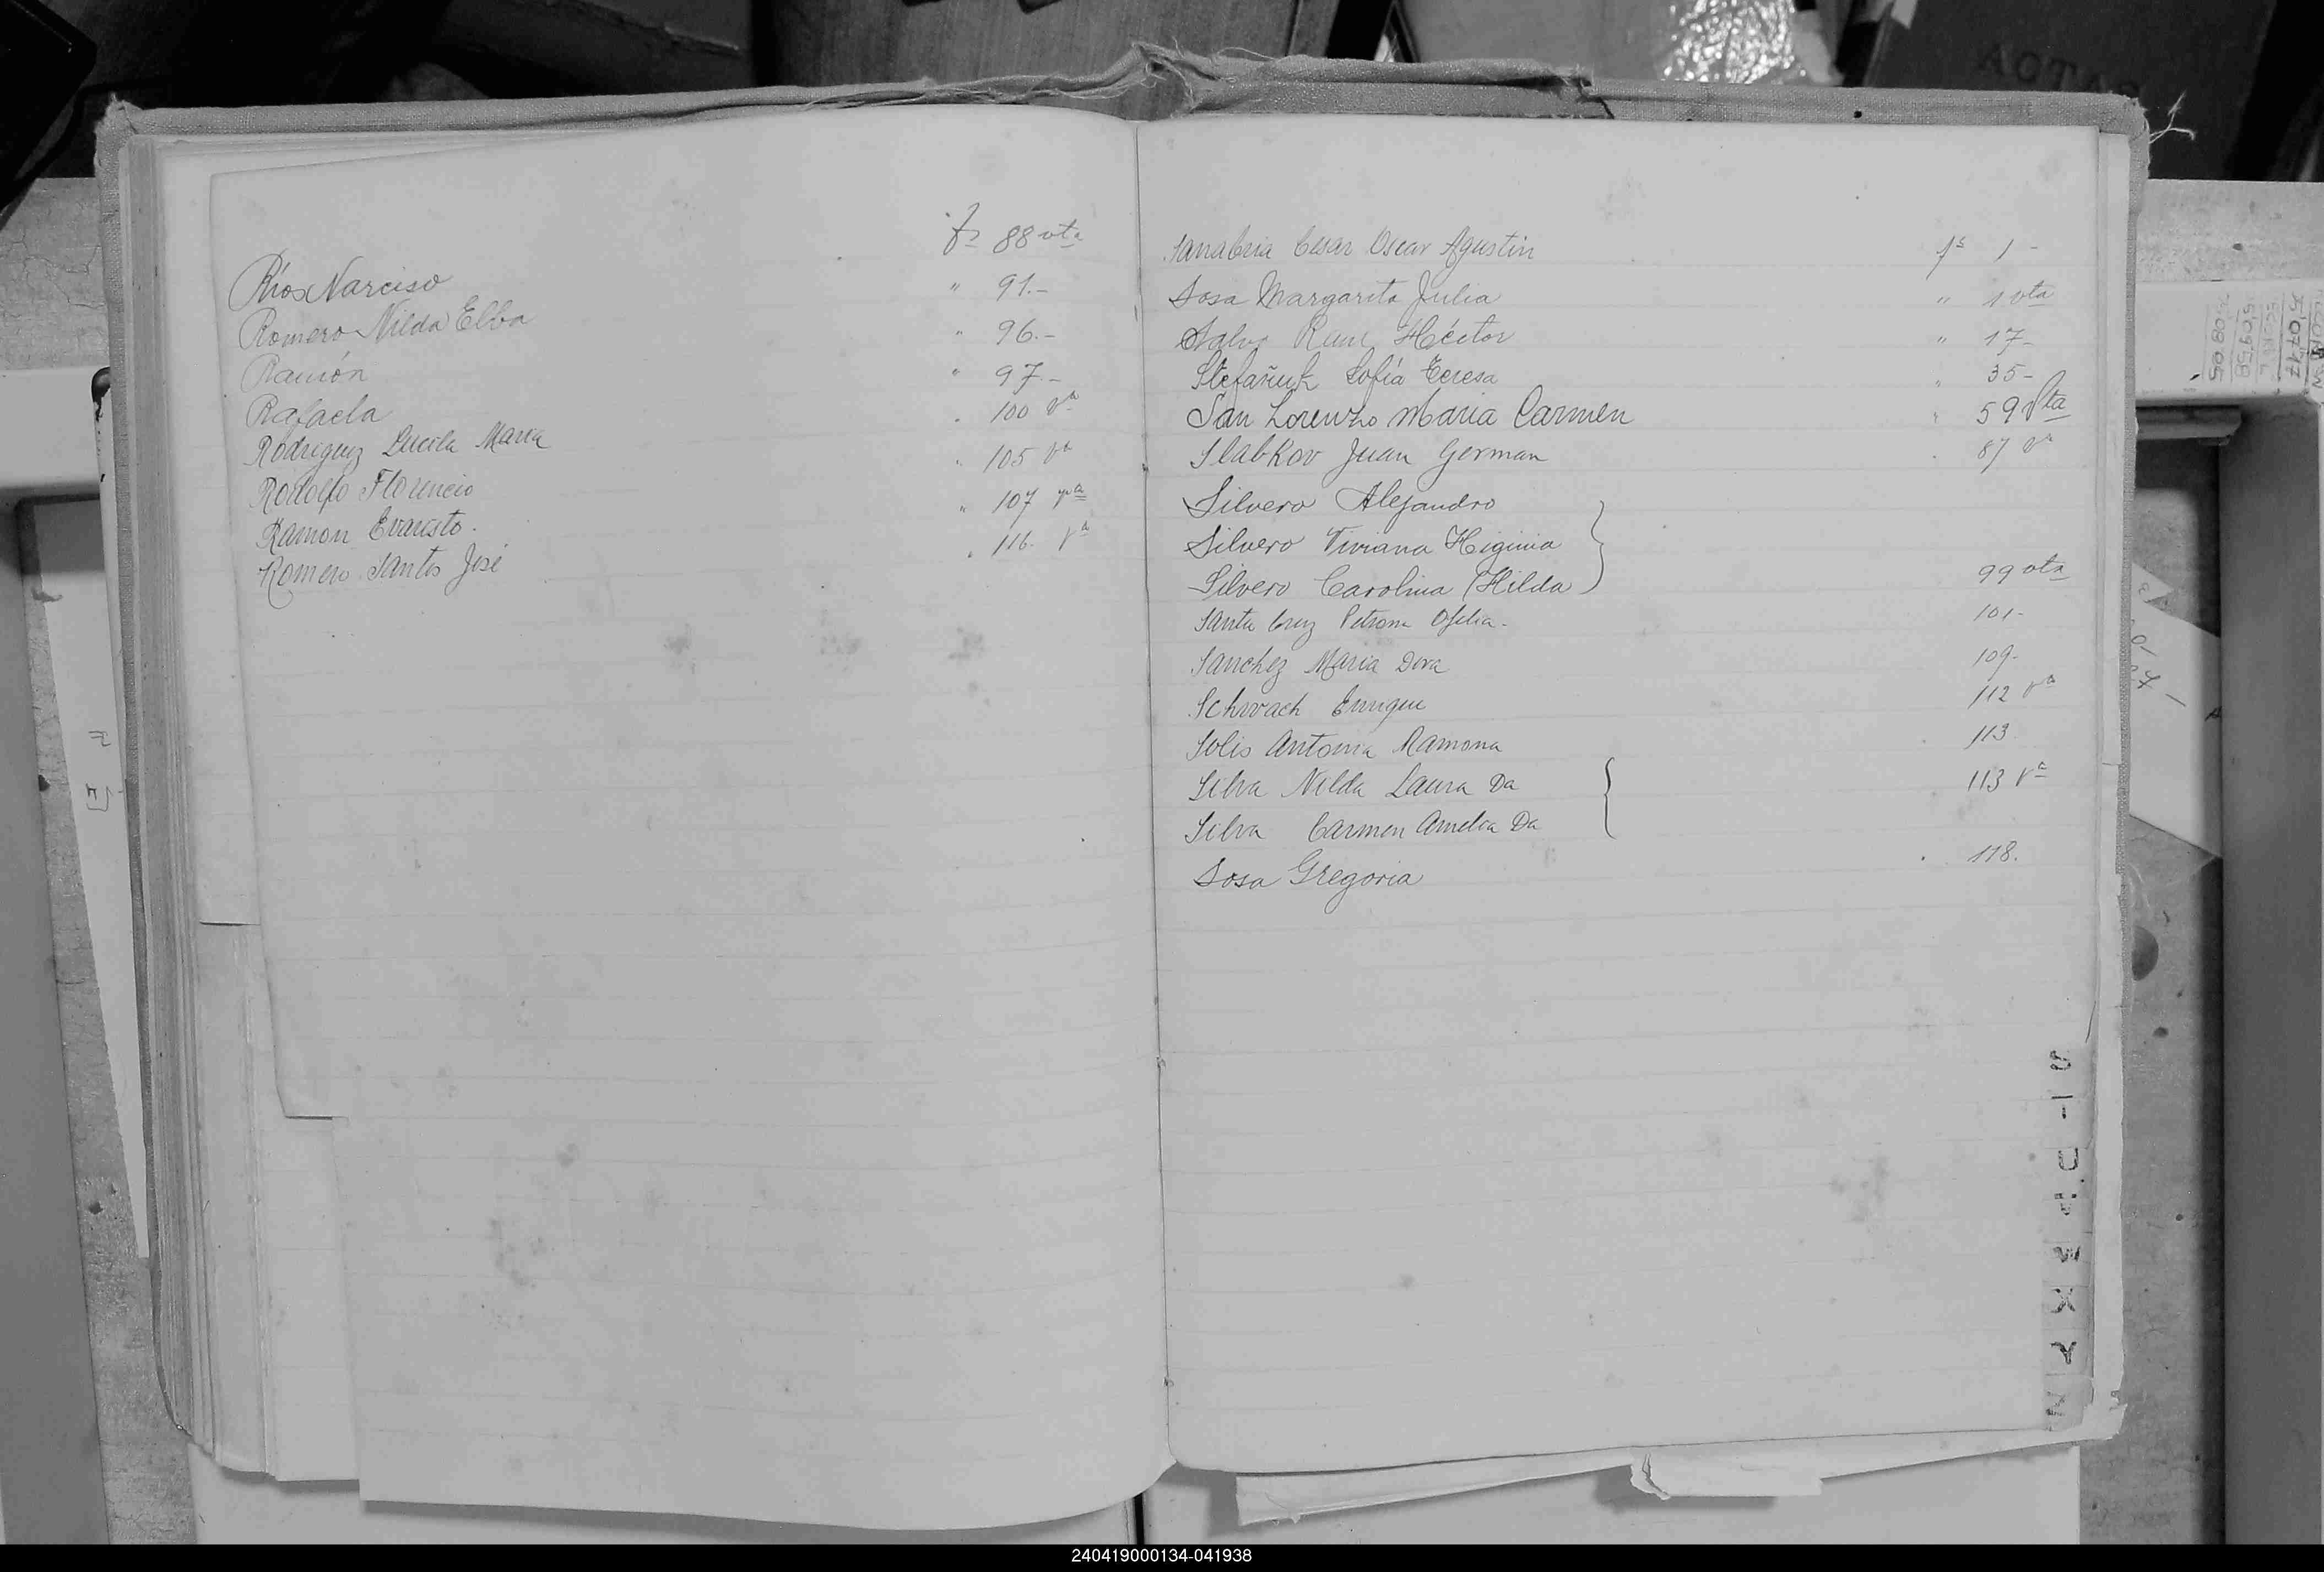 Ríos Narciso fs 88 vta
Romero Nilda Elba " 91.-
Ramón " 96.-
Rafaela " 97.-
Rodriguez Lucila Maria " 100 Va
Rodolfo Florencio " 105 Va
Ramon Evaristo. " 107 Va
Romero Santos José " 116. Va
Sanabria Cesar Oscar Agustin fs 1 -
Sosa Margarita Julia " 1 vta
Héctor " 17-
Stefañuk Sofía Teresa " 35-
San Lorenzo Maria Carmen " 59 Vta
Slabkov Juan German 87 Va
Silvero Alejandro
Silvero Viviana Higinia
Silvero Carolina (Hilda) 99 vta
Santa Cruz Petrona Ofelia. 101-
Sanchez Maria Dora 109-
Schwach Enrique 112 Va
Solis Antonia Ramona 113
Silva Nilda Laura Da 113 Va
Silva Carmen Amelia Da
Sosa Gregoria 118.
240419000134-041938